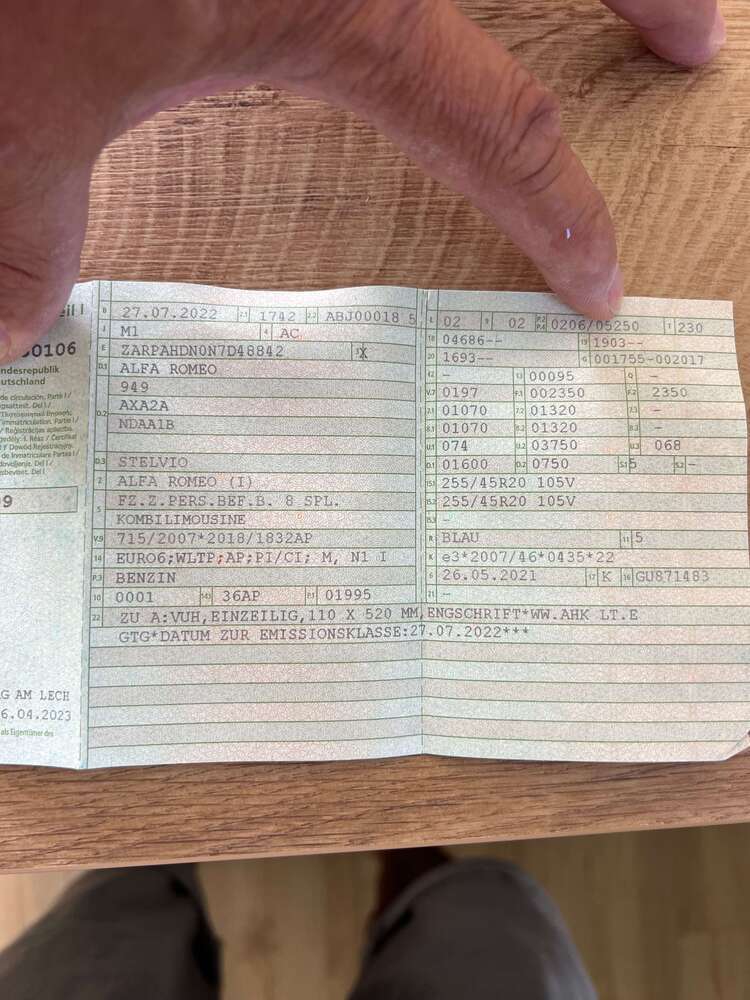 eil I
00106
ndesrepublik
eutschland
99
G AM LECH
6.04.2023
als Eigentümer des
B 27.07.2022 2.1 1742 2.2 ABJ00018 5
J M1 4 AC
E ZARPAHDN0N7D48842 3 X
D.1 ALFA ROMEO
949
D.2 AXA2A
NDAA1B
D.3 STELVIO
2 ALFA ROMEO (I)
5 FZ.Z.PERS.BEF.B. 8 SPL.
KOMBILIMOUSINE
V.9 715/2007*2018/1832AP
14 EURO6;WLTP;AP;PI/CI; M, N1 I
P.3 BENZIN
10 0001 14.1 36AP P.1 01995
L 02 9 02 P.2 P.4 0206/05250 T 230
18 04686-- 19 1903--
20 1693-- G 001755-002017
12 - 13 00095 Q -
V.7 0197 F.1 002350 F.2 2350
7.1 01070 7.2 01320 7.3 -
8.1 01070 8.2 01320 8.3 -
U.1 074 U.2 03750 U.3 068
O.1 01600 O.2 0750 S.1 5 S.2 -
15.1 255/45R20 105V
15.2 255/45R20 105V
15.3 -
R BLAU 11 5
K e3*2007/46*0435*22
6 26.05.2021 17 K 16 GU871483
21 -
22 ZU A:VUH,EINZEILIG,110 X 520 MM,ENGSCHRIFT*WW.AHK LT.E
GTG*DATUM ZUR EMISSIONSKLASSE:27.07.2022***